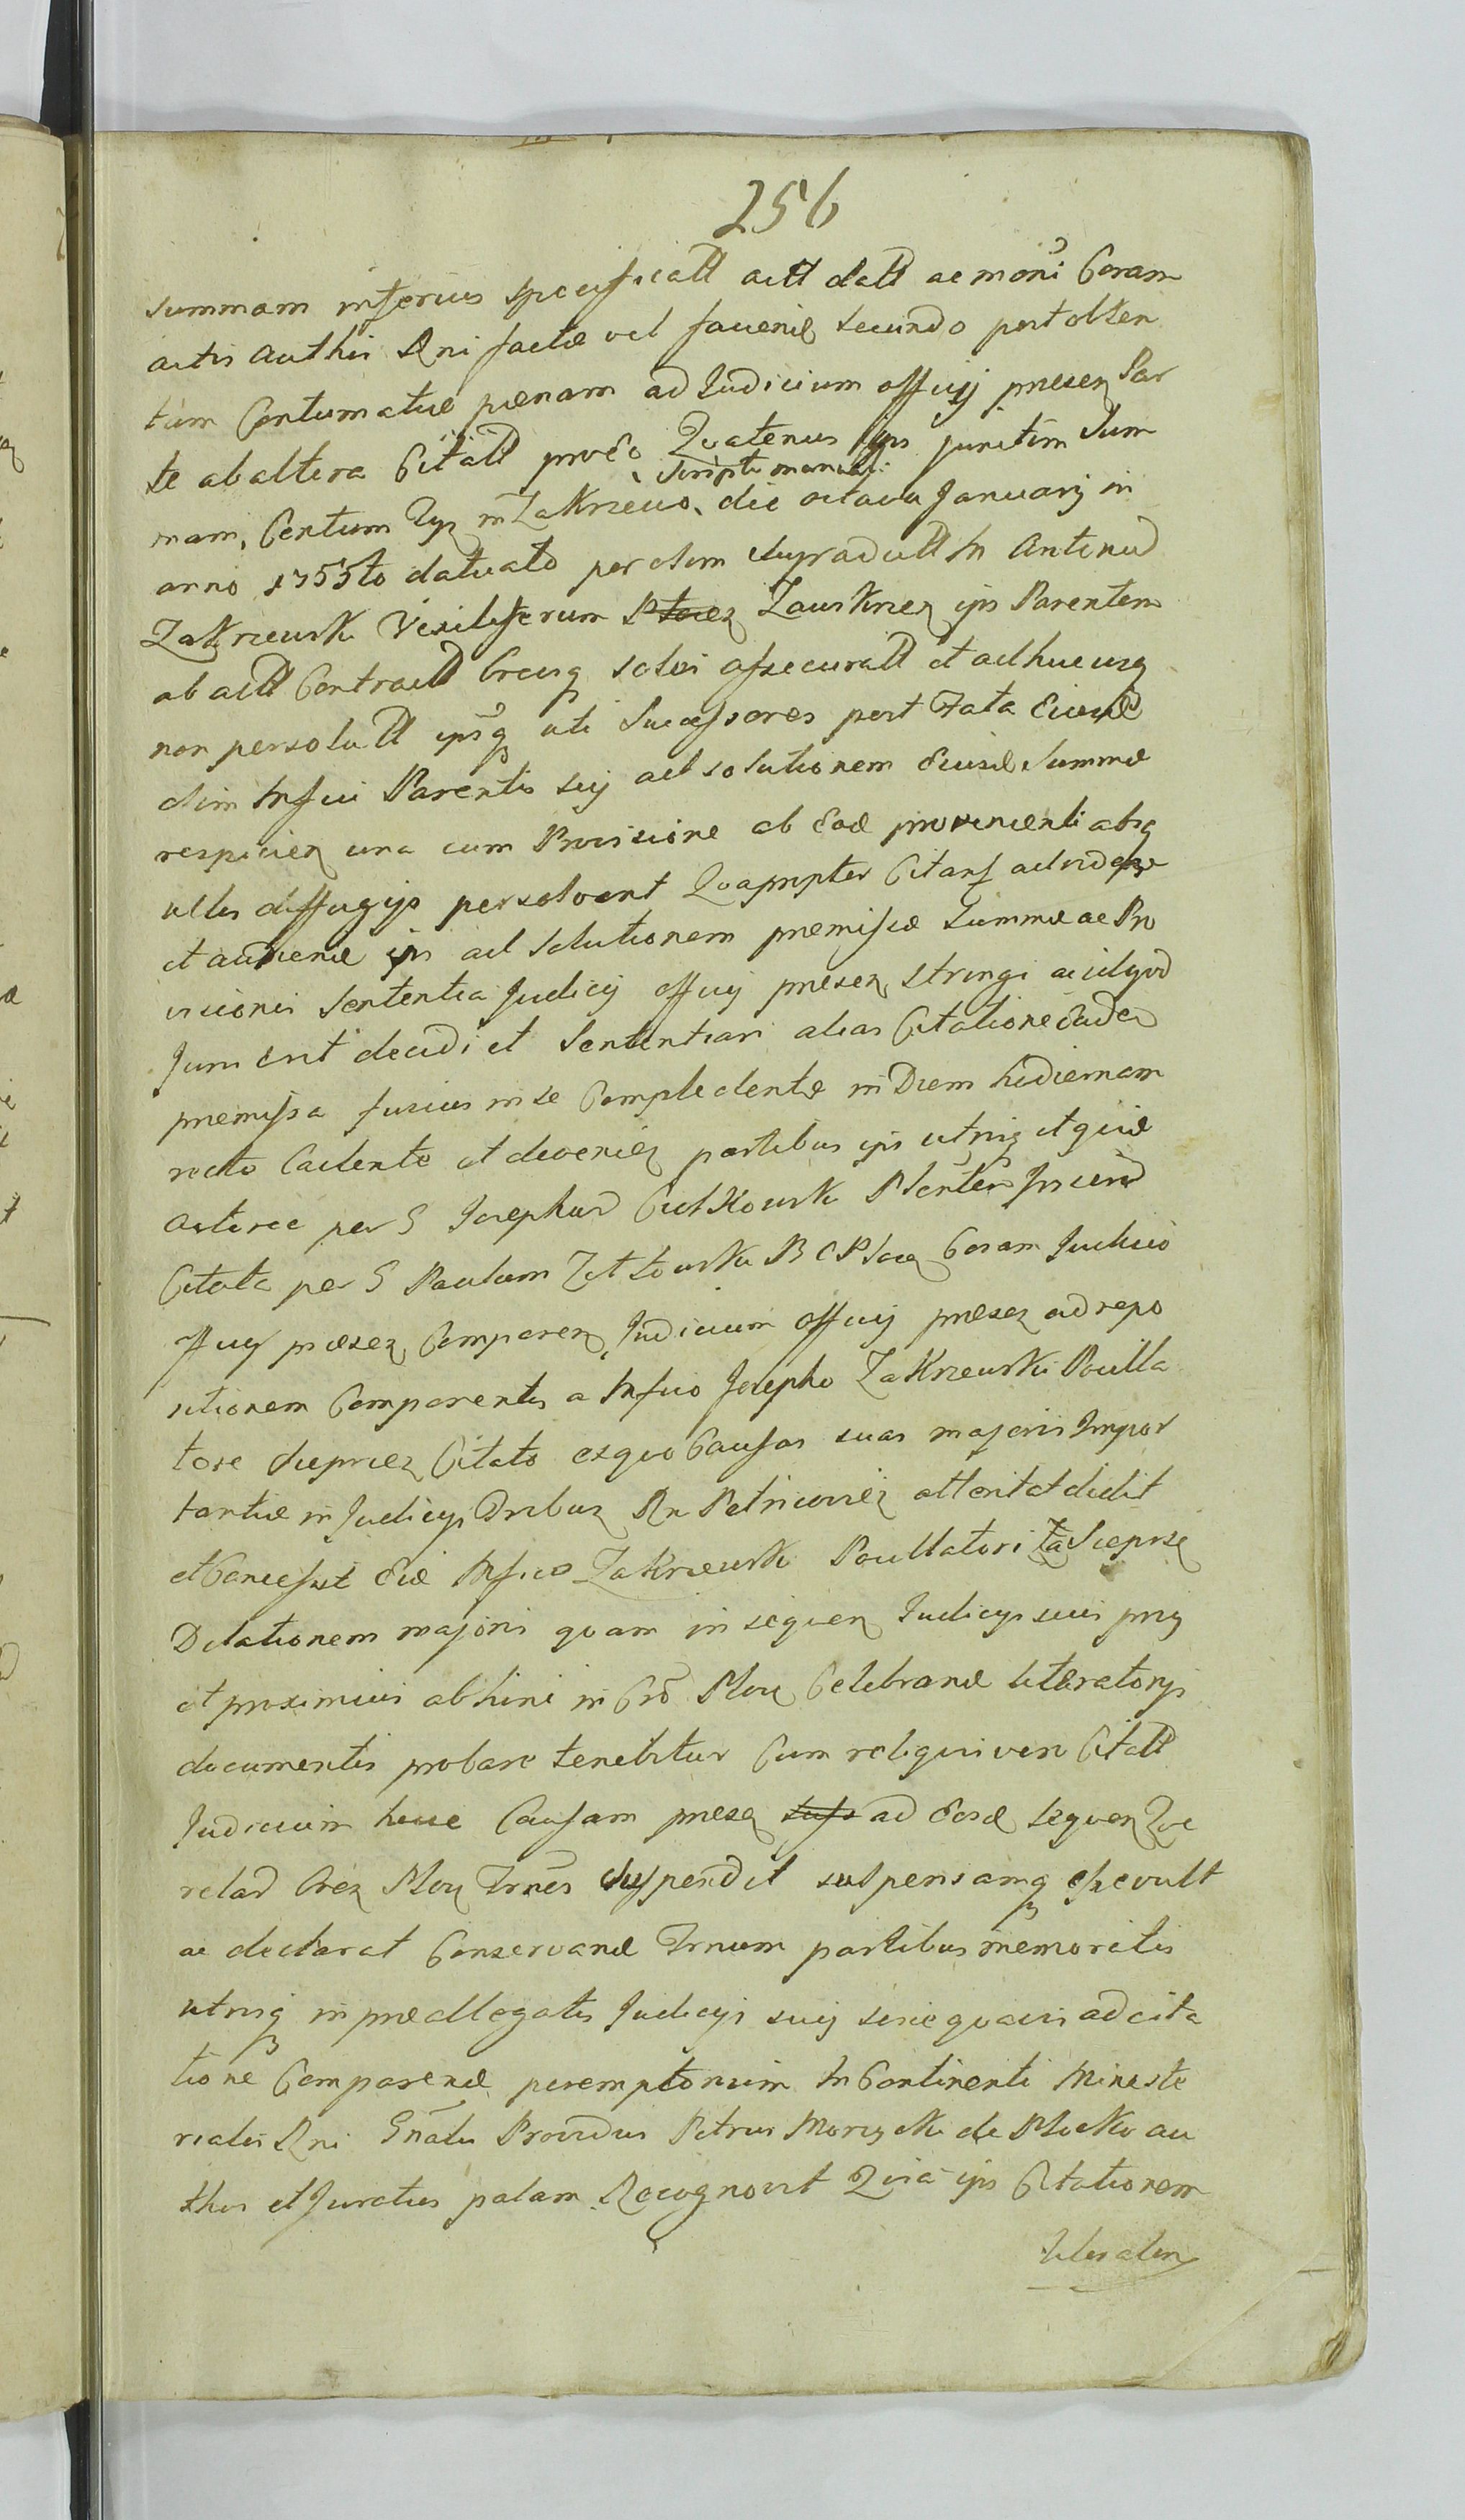 256
summam inferius specificatt actt datt ac moñi Coram
actis Authñ Rni factæ vel faciend secundo post obten
tum Contumatiæ pænam ad Judicium officij præsen Par
te ab altera Citatt pro Eo Quatenus ipsi junctim Sum
mam, Centum in Zakrzewo, Scripto manuali die octava Januarij in
anno 1755to datuato per olim Supradictt M Antonud
Zakrzewski Vexiliferum Zauskrzen ipsi Parentem
ab actt Contractt Erusq solvi assecuratt et adhucusq
non persolutt ipsosq uti Successores post Fata Eiusd
olim Mfici Parentis sui ad solutionem Eiusd Summæ
respicien una cum Provisione ab Eod provenienti absq
ullis diffugijs persolvant Quapropter Citant ad videnđ
et audiend ipsi ad Solutionem præmissæ Summæ ac Pro
visionis Sententia Judicij officij præsen stringi ac id quod
Juris erit decidi et Sententiari alias Citatione Eade
præmissa fusius in se Complectente in Diem hodiernam
recto Cadente et devenien partibus ipsis utrisq et quid
Actorea per G Josephum Cutkowski Plenten Inscrip
Citata per G Paulum Zettowski B C Ploc Coram Judicio
officij præsen Comparen, Judicium officij præsen ad repo
sitionem Comparentis a Mfico Josepho Zakrzewski Pocilla
tore Sieprcen Citato ex quo Causas suas majoris Impor
tantiæ in Judicijs Tribus Rn Petricovien attentat dedit
et Concessit Eid Mfico Zakrzewski Pocillatori Sieprse
Dilationem majoris quam in sequen Judicijs suis prius
et proximius ab hinc in Cro Ploc Celebrand literatorijs
documentis probare tenebitur Cum reliquis vero Citatt
Judicium hocce Causam præsen ad Eosd sequen Que
relar Cres Ploc Trnos Suspendit suspensamq esse vult
ac declarat Conservand Trnum partibus memoratis
utrisq in præallegatis Judicijs suis sine quavis adcita
tione Comparend peremptorium In Continenti Ministe
rialis Rni Gñalis Providus Petrus Morzycki de Plocko au
thus et Juratus palam Recognovit Quia ipse Citationem
literalem